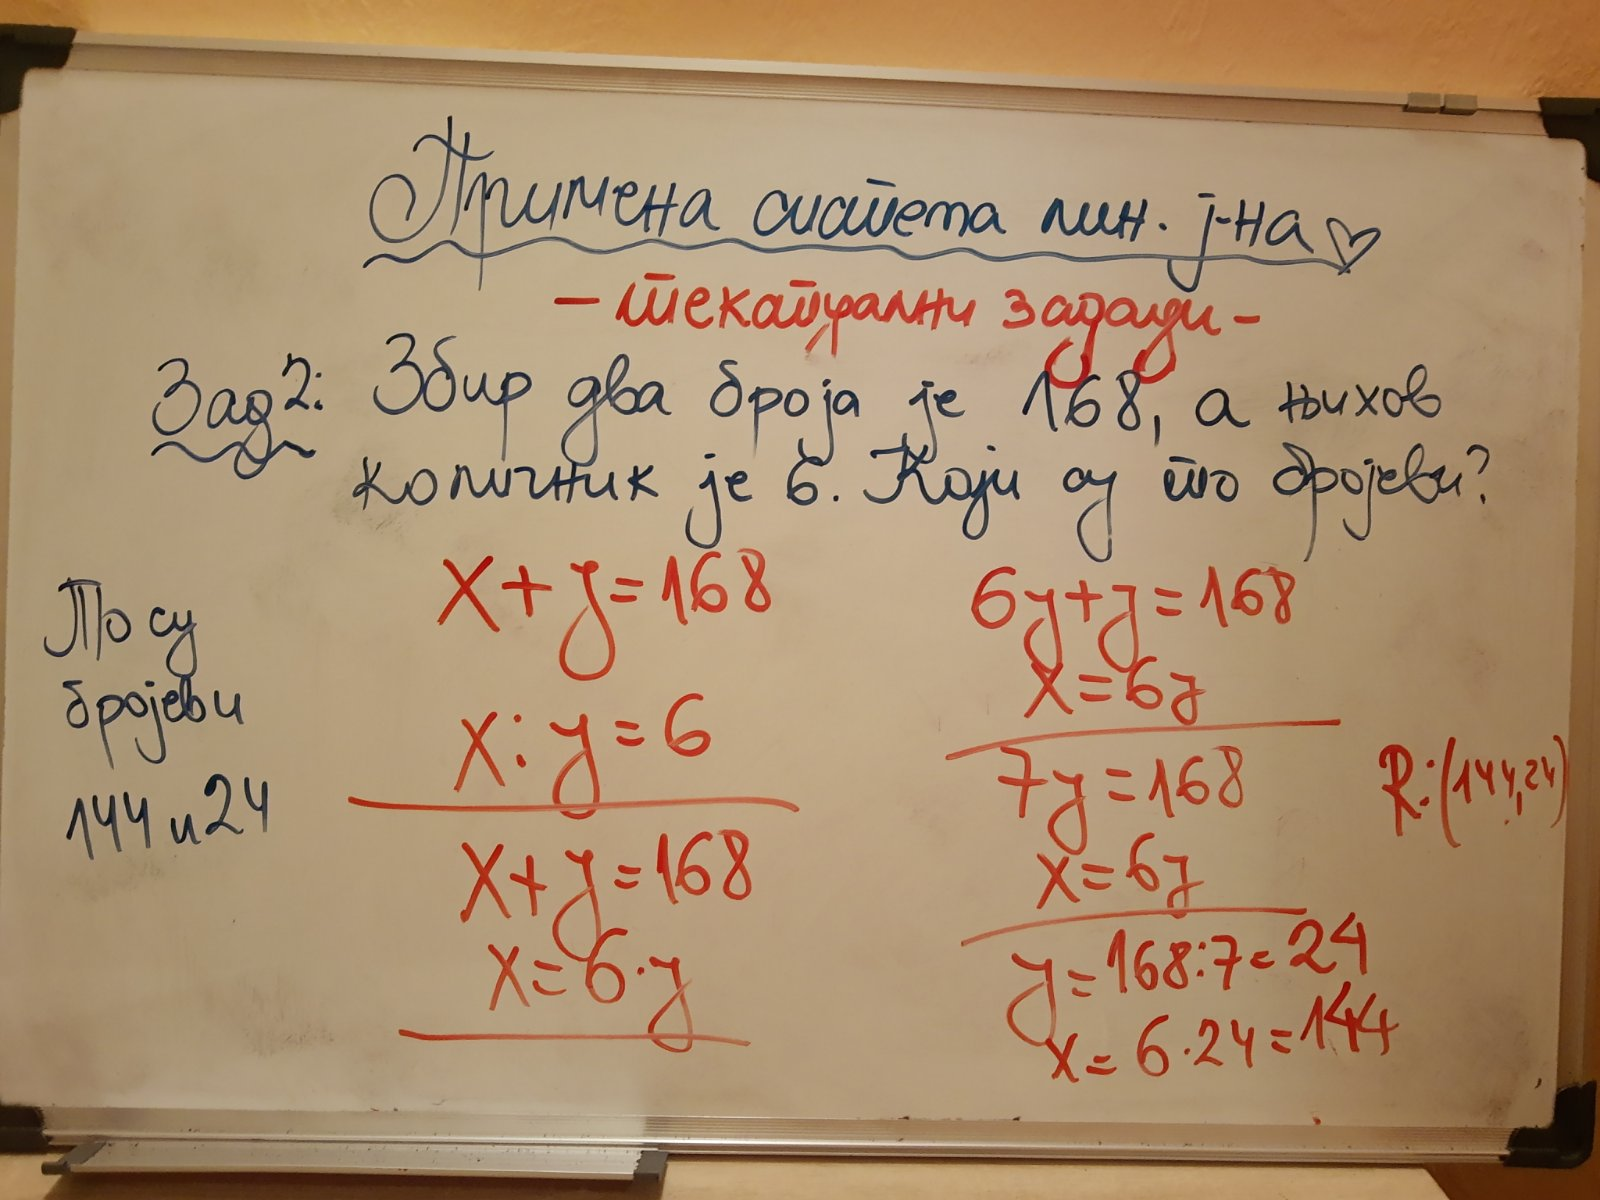 Примена система лин. ј-на
- текстуални задаци -
Зад 2: Збир два броја је 168, а њихов
количник је 6. Који су то бројеви?
x+y=168
x:y=6
x+y=168
x=6·y
6y+y=168
x=6y
7y=168
x=6y
y=168:7=24
x=6·24=144
R:(144,24)
То су
бројеви
144 и 24